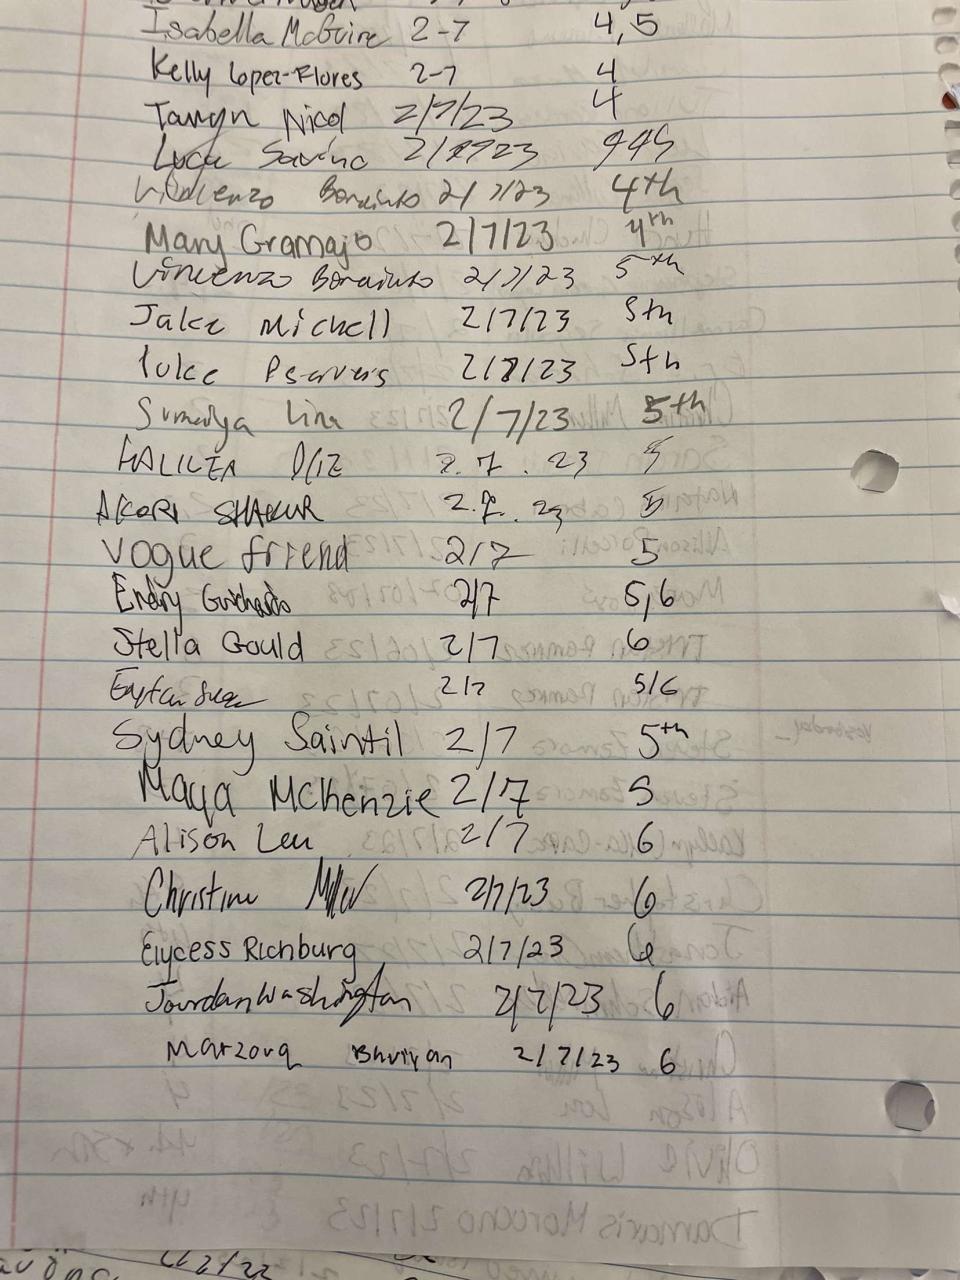 Isabella McGuire 2-7 4,5
Kelly Lopez-Flores 2-7 4
Taryn Nicol 2/7/23 4
Luca Savino 2/7/23
Vincenzo 2/7/23 4th
Mary Gramajo 2/7/23 4th
Vincenzo 2/7/23 5th
Jake Michell 2/7/23 5th
Luke 2/7/23 5th
Sumaiya 2/7/23 5th
GALILEA DIZ 2.7.23 5
AKORI SHAKUR 2.7.23 5
Vogue friend 2/7 5
Endry Guichardo 2/7 5,6
Stella Gould 2/7 6
2/7 5/6
Sydney Saintil 2/7 5th
Maya McKenzie 2/7 5
Alison Leu 2/7 6
Christine 2/7/23 6
Elycess Richburg 2/7/23 6
Jourdan Washington 2/7/23 6
Marzouq Bhuiyan 2/7/23 6